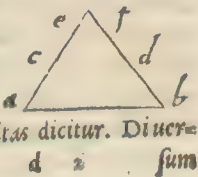 e f
c d
a b
itas dicitur. Diuer=
d z ſum